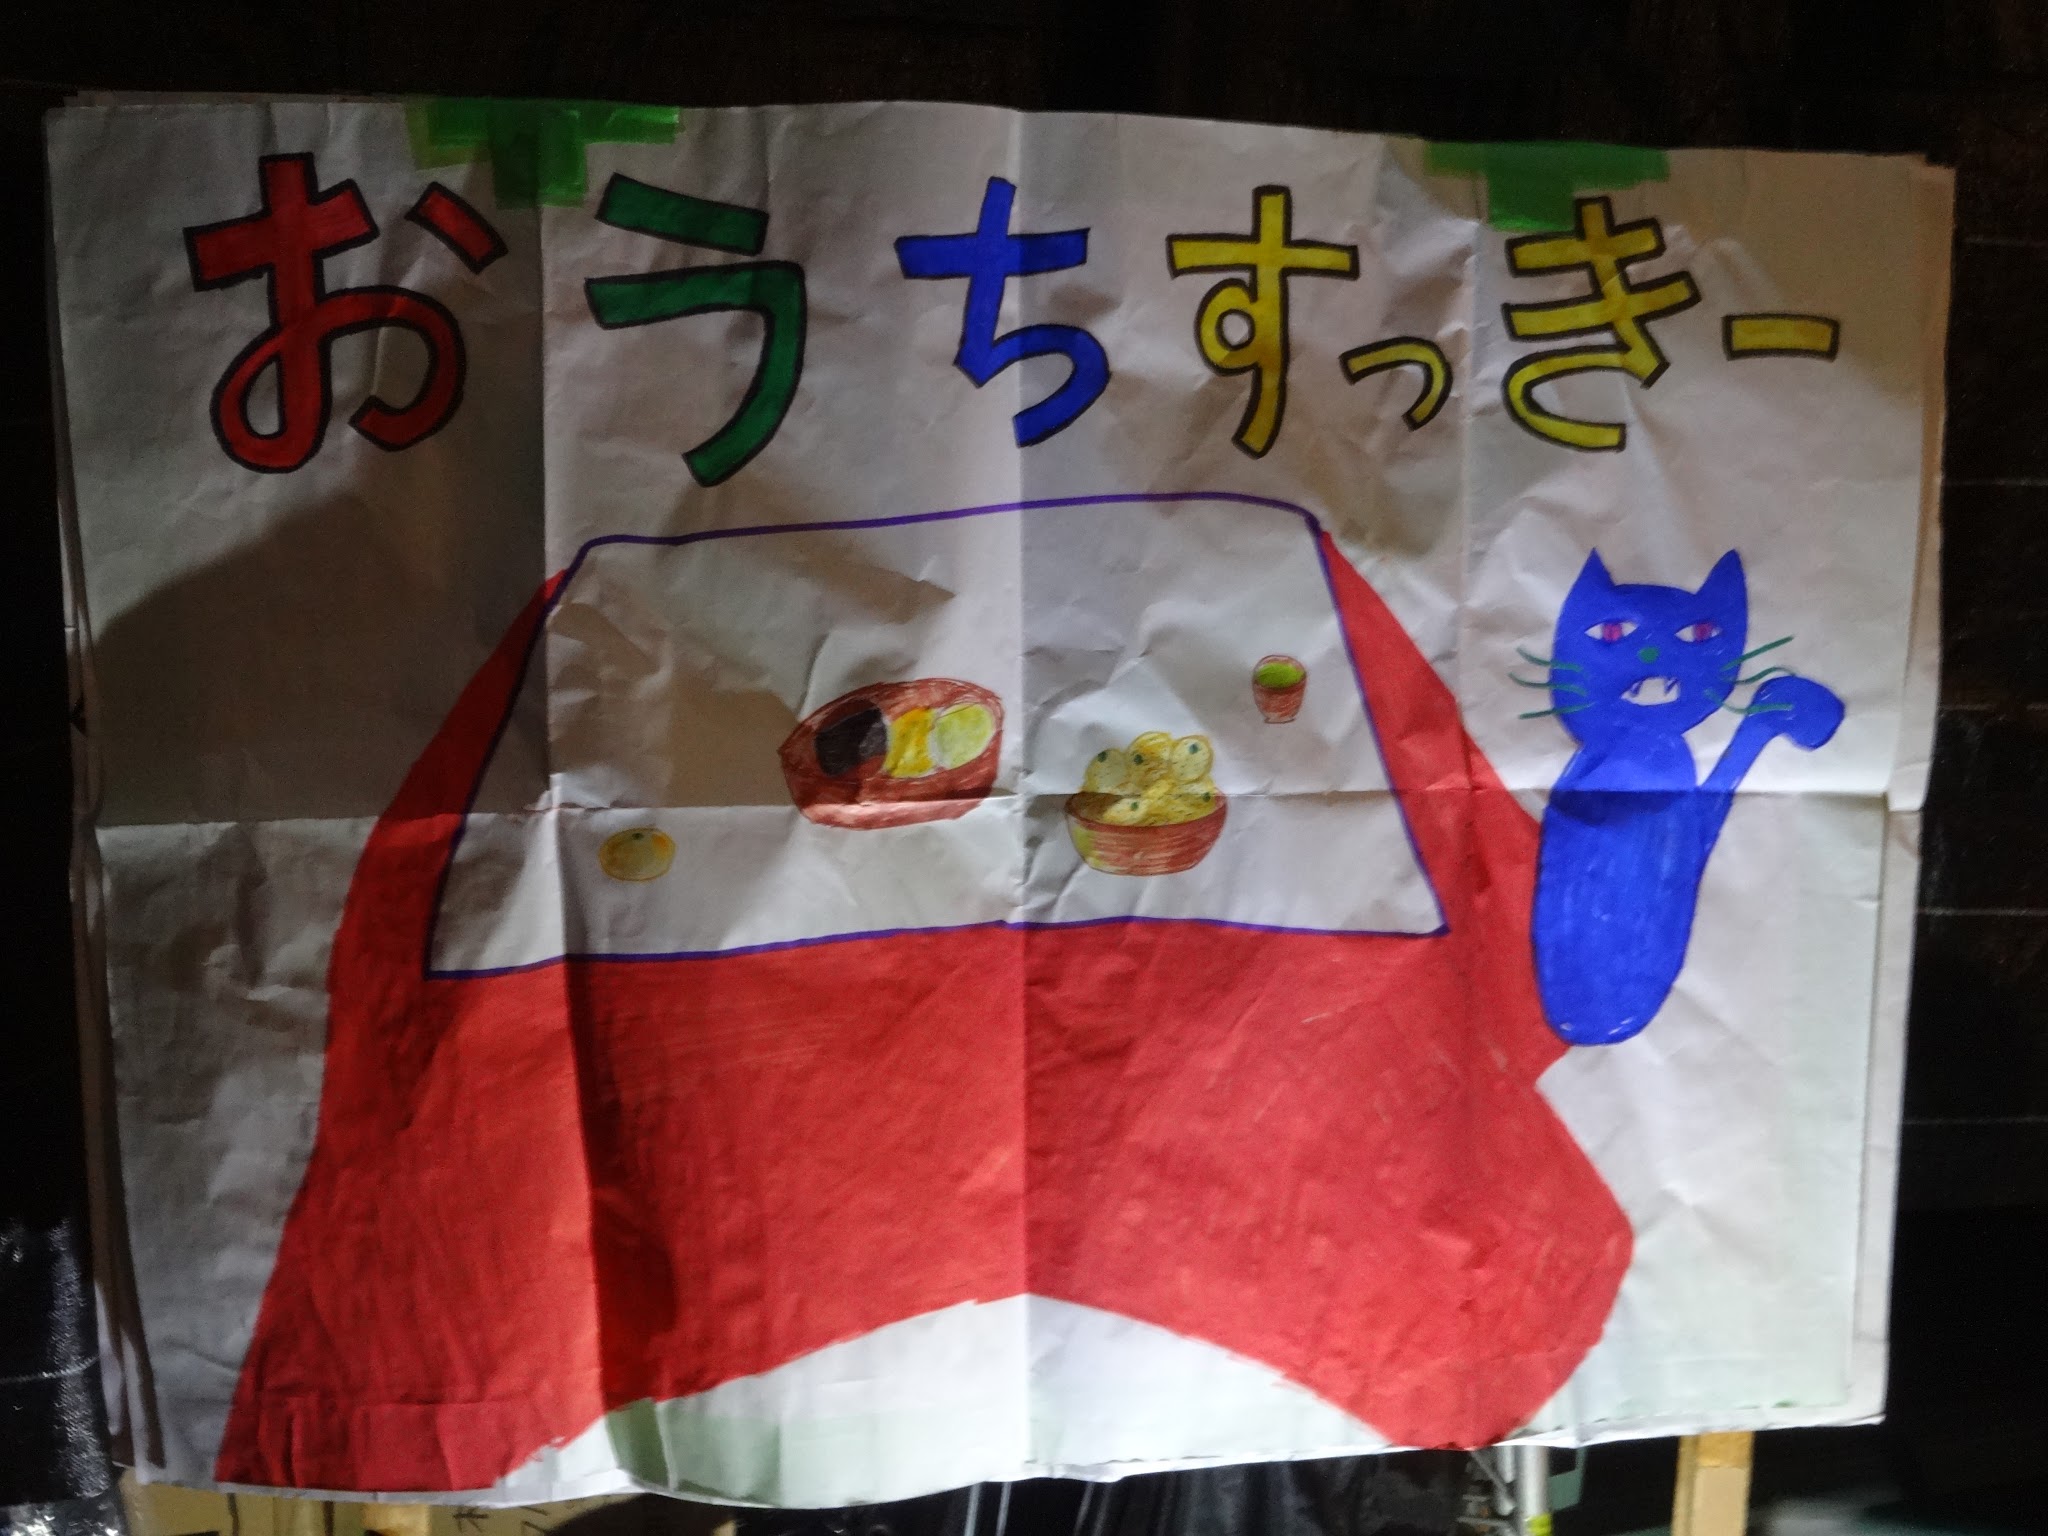 おうちすっきー